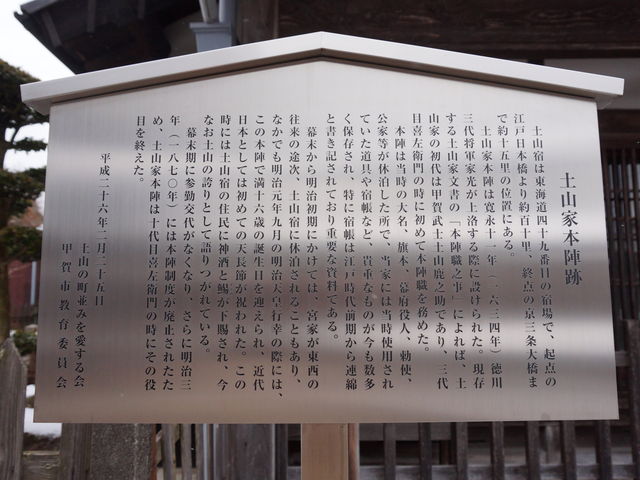 土山家本陣跡
土山宿は東海道四十九番目の宿場で、起点の
江戸日本橋より約百十里、終点の京三条大橋ま
で約十五里の位置にある。
土山家本陣は寛永十一年（一六三四年）徳川
三代将軍家光が上洛する際に設けられた。現存
する土山家文書の「本陣職之事」によれば、土
山家の初代は甲賀武士土山鹿之助であり、三代
目喜左衛門の時に初めて本陣職を務めた。
本陣は当時の大名、旗本、幕府役人、勅使、
公家等が休泊した所で、当家には当時使用され
ていた道具や宿帳など、貴重なものが今も数多
く保存され、特に宿帳は江戸時代前期から連綿
と書き記されており重要な資料である。
幕末から明治初期にかけては、宮家が東西の
往来の途次、土山宿に休泊されることもあり、
なかでも明治元年九月の明治天皇行幸の際には、
この本陣で満十六歳の誕生日を迎えられ、近代
日本としては初めての天長節が祝われた。この
時には土山宿の住民に神酒と鯣が下賜され、今
なお土山の誇りとして語りつがれている。
幕末期に参勤交代がなくなり、さらに明治三
年（一八七〇年）には本陣制度が廃止されたた
め、土山家本陣は十代目喜左衛門の時にその役
目を終えた。
平成二十六年二月二十五日
土山の町並みを愛する会
甲賀市教育委員会